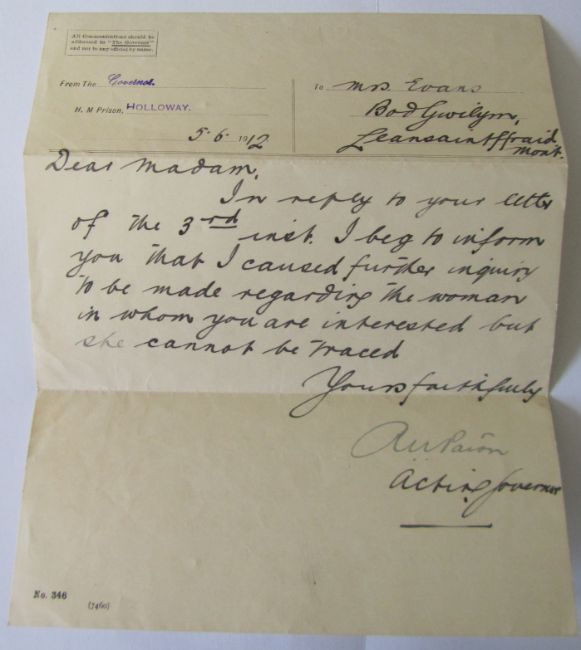 All Communications should be
addressed to "The Governor"
and not to any official by name.
From The Governor.
H. M Prison, HOLLOWAY.
5·6· 1912
To Mrs Evans
Bod Gwilym,
Llansaintffraid
Mont.
Dear Madam,
In reply to your letter
of the 3rd inst. I beg to inform
you that I caused further inquiry
to be made regarding the woman
in whom you are interested but
she cannot be traced
Yours faithfully
Acting Governor
No. 346